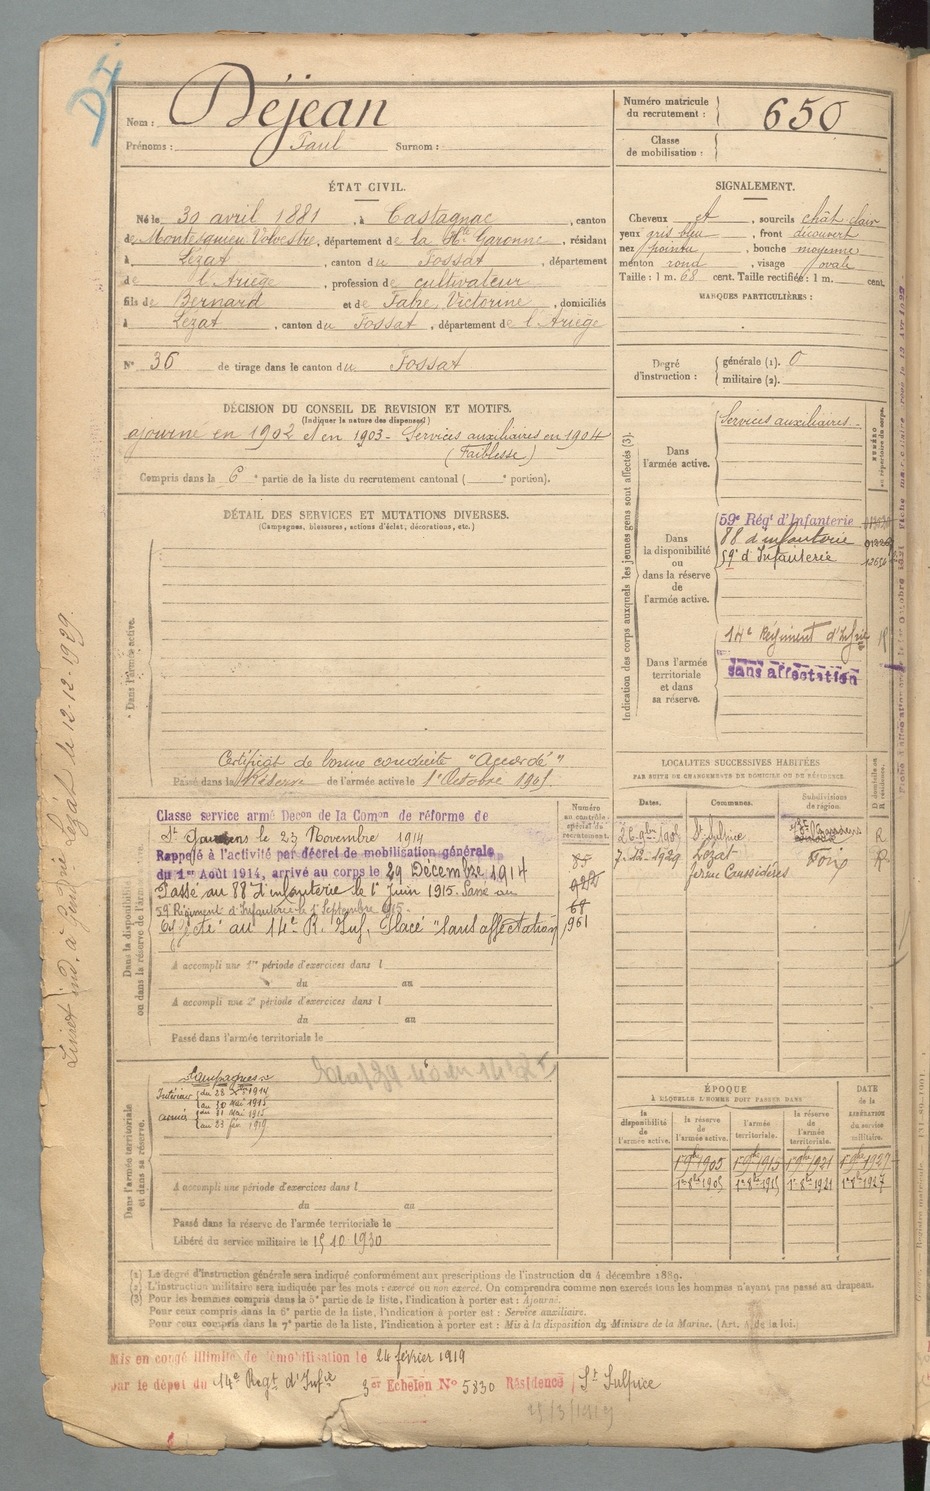 D4
Nom : Déjean
Prénoms : Paul Surnom :
Numéro matricule du recrutement : 650
Classe de mobilisation :
ÉTAT CIVIL.
Né le 30 avril 1881, à Castagnac, canton
de Montesquieu Volvestre, département de la Hte Garonne, résidant
à Lézat, canton du Fossat, département
de l'Ariège, profession de cultivateur
fils de Bernard et de Fabre Victorine, domiciliés
à Lézat, canton du Fossat, département de l'Ariège
N° 36 de tirage dans le canton du Fossat
SIGNALEMENT.
Cheveux et, sourcils chât clair
yeux gris bleu, front découvert
nez pointu, bouche moyenne
menton rond, visage ovale
Taille : 1 m. 68 cent. Taille rectifiée : 1 m. cent.
MARQUES PARTICULIÈRES :
Degré d'instruction : générale (1). 0
militaire (2).
DÉCISION DU CONSEIL DE REVISION ET MOTIFS.
(Indiquer la nature des dispenses)
ajourné en 1902 et en 1903 - Services auxiliaires en 1904
(Faiblesse)
Compris dans la 6e partie de la liste du recrutement cantonal ( e portion).
DÉTAIL DES SERVICES ET MUTATIONS DIVERSES.
(Campagnes, blessures, actions d'éclat, décorations, etc.)
Dans l'armée active.
Certificat de bonne conduite "Accordé"
Passé dans la Réserve de l'armée active le 1er Octobre 1905
Indication des corps auxquels les jeunes gens sont affectés (3).
NUMÉRO au répertoire du corps.
Dans l'armée active.
Services auxiliaires.
Dans la disponibilité ou dans la réserve de l'armée active.
59e Régt d'Infanterie
88 d'infanterie
59e d'Infanterie
Dans l'armée territoriale et dans sa réserve.
14e Régiment d'Infrie
sans affectation
Dans la disponibilité ou dans la réserve de l'armée active.
Numéro au contrôle spécial du recrutement.
Classe service armé Decon de la Comon de réforme de
St Gaudens le 23 Novembre 1914
Rappelé à l'activité par décret de mobilisation générale
du 1er Août 1914, arrivé au corps le 29 Décembre 1914
Passé au 88e d'infanterie le 1er Juin 1915. Passé au
59 Régiment d'Infanterie le 1er Septembre 1915.
au 14e R. Inf. Placé "sans affectation"
961
A accompli une 1re période d'exercices dans l
du au
A accompli une 2e période d'exercices dans l
du au
Passé dans l'armée territoriale le
LOCALITÉS SUCCESSIVES HABITÉES
PAR SUITE DE CHANGEMENTS DE DOMICILE OU DE RÉSIDENCE.
Dates. Communes. Subdivisions de région. D domicile ou R résidence.
26 9bre 1908 St Sulpice R
7-12-1929 Lézat Foix R
ferme Caussidères
Dans l'armée territoriale et dans sa réserve.
Campagnes
Intérieur du 28 Xbre 1914
au 30 Mai 1915
armées du 31 Mai 1915
au 23 fév 1919
A accompli une période d'exercices dans l
du au
Passé dans la réserve de l'armée territoriale le
Libéré du service militaire le 15 10 1930
ÉPOQUE
À LAQUELLE L'HOMME DOIT PASSER DANS
la disponibilité de l'armée active. la réserve de l'armée active. l'armée territoriale. la réserve de l'armée territoriale. DATE de la LIBÉRATION du service militaire.
1er 9bre 1905 1er 9bre 1915 1er 9bre 1921 1er 9bre 1927
1er 8bre 1905 1er 8bre 1915 1er 8bre 1921 1er 8bre 1927
(1) Le degré d'instruction générale sera indiqué conformément aux prescriptions de l'instruction du 4 décembre 1889.
(2) L'instruction militaire sera indiquée par les mots : exercé ou non exercé. On comprendra comme non exercés tous les hommes n'ayant pas passé au drapeau.
(3) Pour les hommes compris dans la 5e partie de la liste, l'indication à porter est : Ajourné.
Pour ceux compris dans la 6e partie de la liste, l'indication à porter est : Service auxiliaire.
Pour ceux compris dans la 7e partie de la liste, l'indication à porter est : Mis à la disposition du Ministre de la Marine. (Art. 4 de la loi.)
Mis en congé illimité de démobilisation le 24 février 1919
par le dépôt du 14e Regt d'Infie 3er Echelon N° 5830 Résidence St Sulpice
Livret ind. à Gendrie Lézat le 12-12-1929.